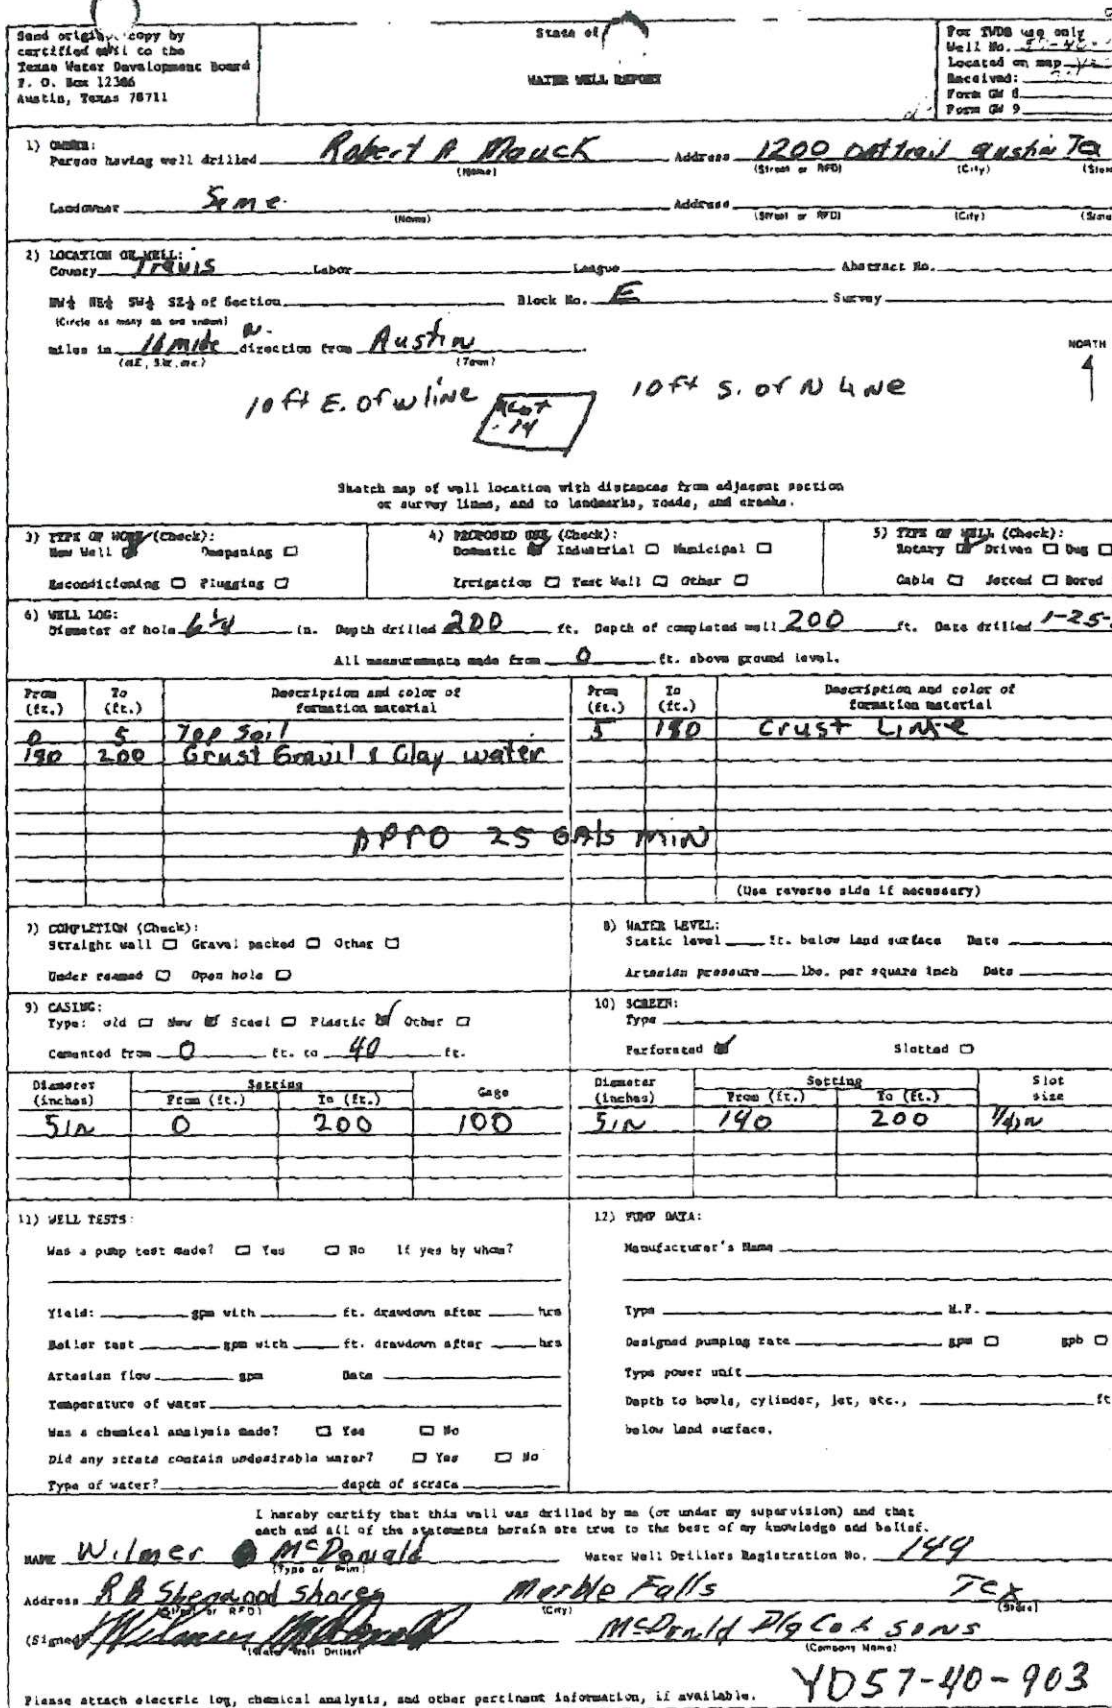 Send original copy by
certified mail to the
Texas Water Development Board
P. O. Box 12386
Austin, Texas 78711
State of
WATER WELL REPORT
For TWDB use only
Well No.
Located on map
Received:
Form GW 8
Form GW 9
1) OWNER:
Person having well drilled Robert A Mauck Address 1200 trail Austin Tex
(Name) (Street or RFD) (City)
Landowner Same. Address
(Name) (Street or RFD) (City)
2) LOCATION OF WELL:
County Travis Labor League Abstract No.
NW¼ NE¼ SW¼ SE¼ of Section Block No. E Survey
(Circle as many as are known)
miles in 16 mile N. direction from Austin
(NE, SW, etc.) (Town)
NORTH
10 ft E. of W line Lot 14 10 ft S. of N LiNe
Sketch map of well location with distances from adjacent section
or survey lines, and to landmarks, roads, and creeks.
3) TYPE OF WORK (Check):
New Well Deepening
Reconditioning Plugging
4) PROPOSED USE (Check):
Domestic Industrial Municipal
Irrigation Test Well Other
5) TYPE OF WELL (Check):
Rotary Driven Dug
Cable Jetted Bored
6) WELL LOG:
Diameter of hole 6¼ in. Depth drilled 200 ft. Depth of completed well 200 ft. Date drilled 1-25-
All measurements made from 0 ft. above ground level.
From (ft.) To (ft.) Description and color of formation material From (ft.) To (ft.) Description and color of formation material
0 5 Top Soil 5 190 Crust Lime
190 200 Crust Gravil & Clay water
APPO 25 GAls MiN
(Use reverse side if necessary)
7) COMPLETION (Check):
Straight wall Gravel packed Other
Under reamed Open hole
8) WATER LEVEL:
Static level ft. below land surface Date
Artesian pressure lbs. per square inch Date
9) CASING:
Type: Old New Steel Plastic Other
Cemented from 0 ft. to 40 ft.
10) SCREEN:
Type
Perforated Slotted
Diameter (inches) Setting From (ft.) To (ft.) Gage
5 iN 0 200 100
Diameter (inches) Setting From (ft.) To (ft.) Slot size
5 iN 140 200 1/4 iN
11) WELL TESTS:
Was a pump test made? Yes No If yes by whom?
Yield: gpm with ft. drawdown after hrs
Bailer test gpm with ft. drawdown after hrs
Artesian flow gpm Date
Temperature of water
Was a chemical analysis made? Yes No
Did any strata contain undesirable water? Yes No
Type of water? depth of strata
12) PUMP DATA:
Manufacturer's Name
Type H.P.
Designed pumping rate gpm gph
Type power unit
Depth to bowls, cylinder, jet, etc., ft
below land surface.
I hereby certify that this well was drilled by me (or under my supervision) and that
each and all of the statements herein are true to the best of my knowledge and belief.
NAME Wilmer McDonald Water Well Drillers Registration No. 149
(Type or Print)
Address R B Sherwood Shores Marble Falls Tex
(Street or RFD) (City) (State)
(Signed) Wilmer McDonald McDonald Dlg Co & SONS
(Water Well Driller) (Company Name)
YD57-40-903
Please attach electric log, chemical analysis, and other pertinent information, if available.